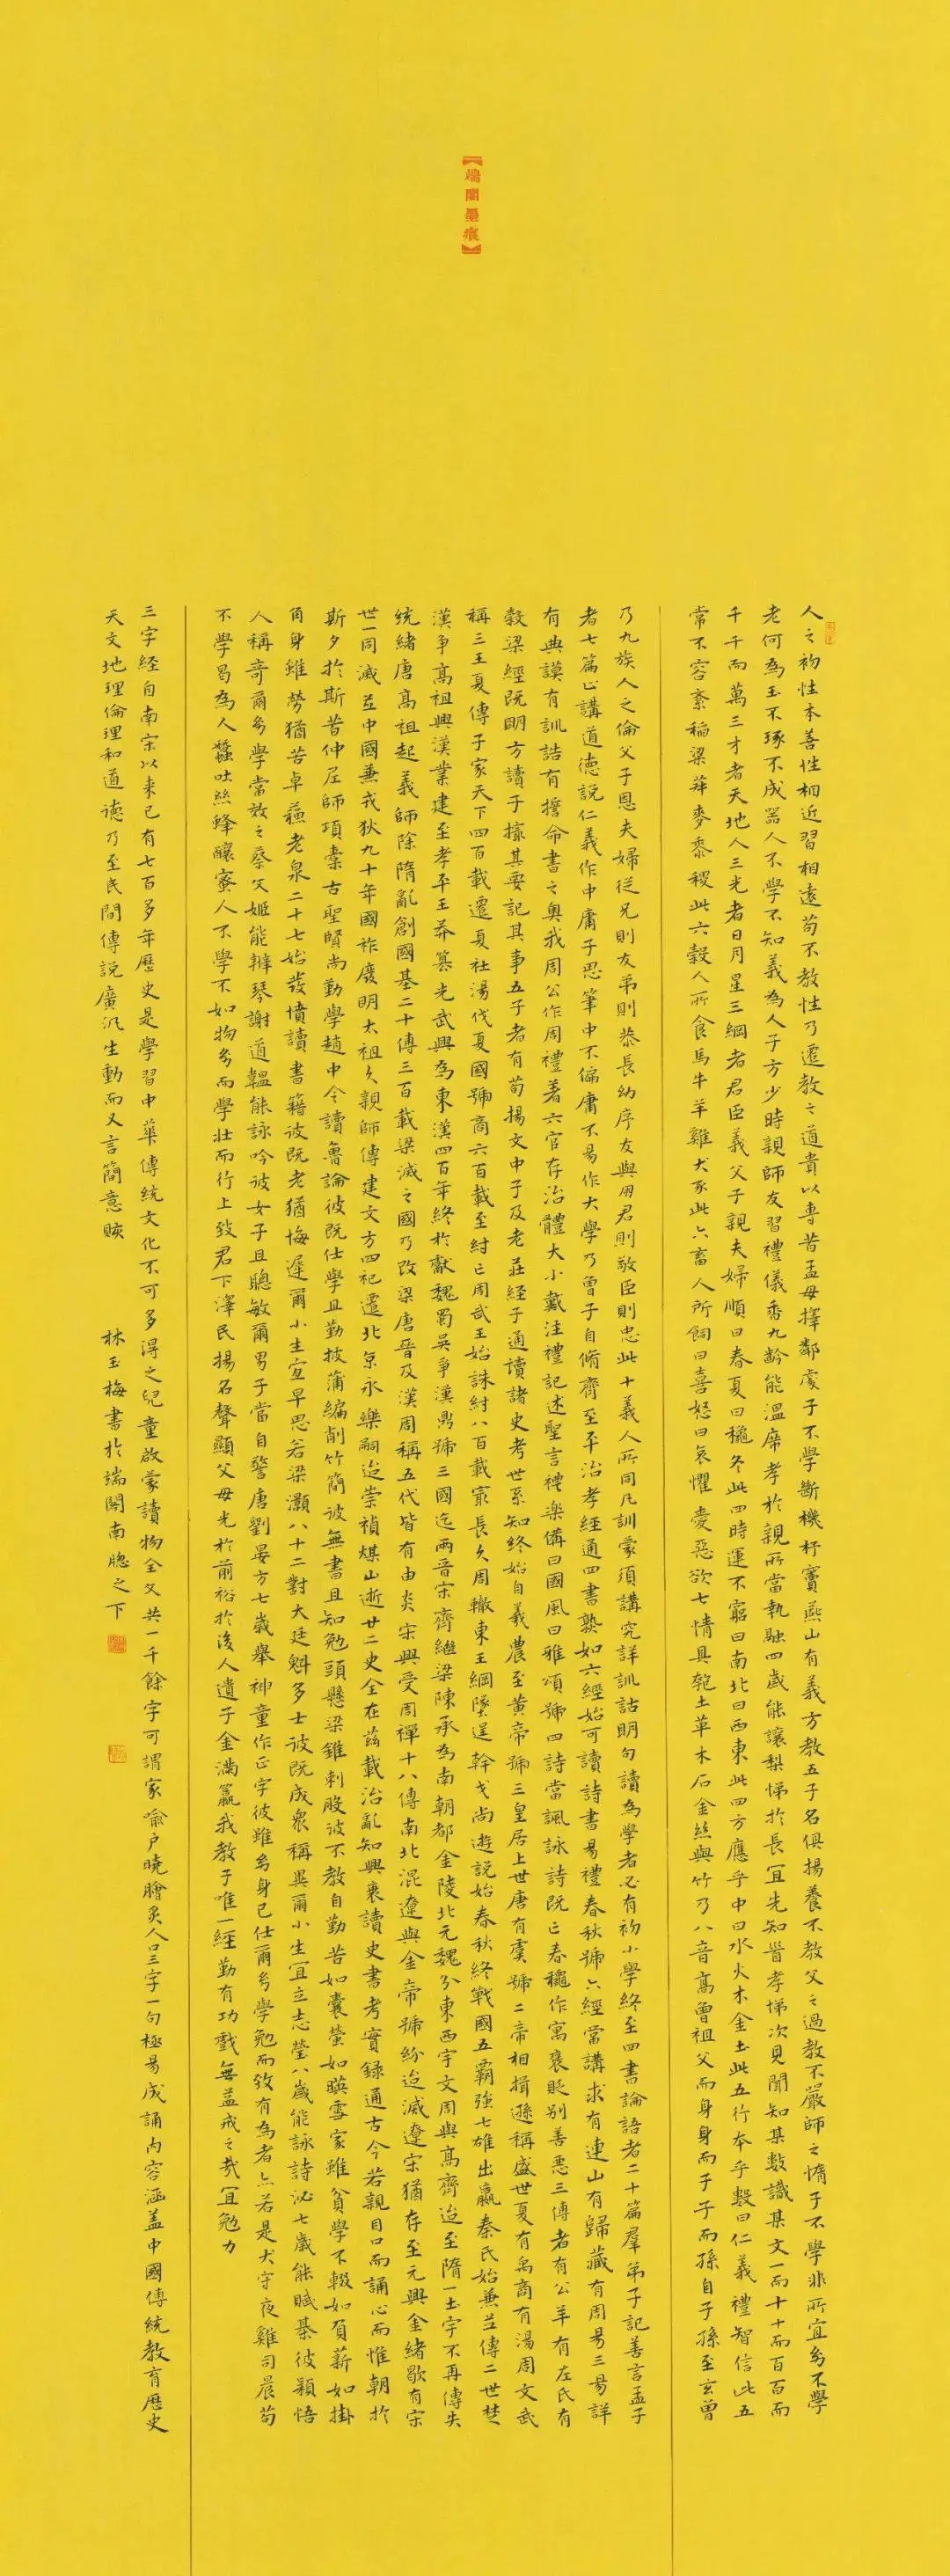 【端閣墨痕】
人之初性本善性相近習相遠苟不教性乃遷教之道貴以專昔孟母擇鄰處子不學斷機杼竇燕山有義方教五子名俱揚養不教父之過教不嚴師之惰子不學非所宜幼不學
老何為玉不琢不成器人不學不知義為人子方少時親師友習禮儀香九齡能溫席孝於親所當執融四歲能讓梨悌於長宜先知首孝悌次見聞知某數識某文一而十十而百百而
千千而萬三才者天地人三光者日月星三綱者君臣義父子親夫婦順曰春夏曰穐冬此四時運不窮曰南北曰西東此四方應乎中曰水火木金土此五行本乎數曰仁義禮智信此五
常不容紊稻梁菽麥黍稷此六穀人所食馬牛羊雞犬豕此六畜人所飼曰喜怒曰哀懼愛惡欲七情具匏土革木石金絲與竹乃八音高曾祖父而身身而子子而孫自子孫至玄曾
乃九族人之倫父子恩夫婦從兄則友弟則恭長幼序友與朋君則敬臣則忠此十義人所同凡訓蒙須講究詳訓詁明句讀為學者必有初小學終至四書論語者二十篇羣弟子記善言孟子
者七篇止講道德説仁義作中庸子思筆中不偏庸不易作大學乃曾子自脩齊至平治孝經通四書熟如六經始可讀詩書易禮春秋號六經當講求有連山有歸藏有周易三易詳
有典謨有訓誥有誓命書之奧我周公作周禮著六官存治體大小戴注禮記述聖言禮樂備曰國風曰雅頌號四詩當諷詠詩既亡春穐作寓褒貶别善惡三傳者有公羊有左氏有
穀梁經既明方讀子撮其要記其事五子者有荀揚文中子及老莊經子通讀諸史考世系知終始自羲農至黃帝號三皇居上世唐有虞號二帝相揖遜稱盛世夏有禹商有湯周文武
稱三王夏傳子家天下四百載遷夏社湯伐夏國號商六百載至紂亡周武王始誅紂八百載冣長久周轍東王綱墜逞幹戈尚遊説始春秋終戰國五霸強七雄出嬴秦氏始兼并傳二世楚
漢爭高祖興漢業建至孝平王莽篡光武興為東漢四百年終於獻魏蜀吳爭漢鼎號三國迄兩晉宋齊繼梁陳承為南朝都金陵北元魏分東西宇文周與高齊迨至隋一土宇不再傳失
統緒唐高祖起義師除隋亂創國基二十傳三百載梁滅之國乃改梁唐晉及漢周稱五代皆有由炎宋興受周禪十八傳南北混遼與金帝號紛迨滅遼宋猶存至元興金緒歇有宋
世一同滅并中國兼戎狄九十年國祚廢明太祖久親師傳建文方四祀遷北京永樂嗣迨崇禎煤山逝廿二史全在茲載治亂知興衰讀史書考實録通古今若親目口而誦心而惟朝於
斯夕於斯昔仲尼師項橐古聖賢尚勤學趙中令讀魯論彼既仕學且勤披蒲編削竹簡彼無書且知勉頭懸梁錐刺股彼不教自勤苦如囊螢如暎雪家雖貧學不輟如負薪如掛
角身雖勞猶苦卓蘓老泉二十七始發憤讀書籍彼既老猶悔遲爾小生宜早思若梁灝八十二對大廷魁多士彼既成衆稱異爾小生宜立志瑩八歲能詠詩泌七歲能賦棊彼穎悟
人稱奇爾幼學當效之蔡文姬能辨琴謝道韞能詠吟彼女子且聰敏爾男子當自警唐劉晏方七歲舉神童作正字彼雖幼身已仕爾幼學勉而致有為者亦若是犬守夜雞司晨苟
不學曷為人蠶吐絲蜂釀蜜人不學不如物幼而學壯而行上致君下澤民揚名聲顯父母光於前裕於後人遺子金滿籯我教子唯一經勤有功戲無益戒之哉宜勉力
三字経自南宋以来已有七百多年歷史是學習中華傳統文化不可多得之兒童啟蒙讀物全文共一千餘字可謂家喻户曉膾炙人口三字一句極易成誦内容涵蓋中國傳統教育歷史
天文地理倫理和道德乃至民間傳説廣汎生動而又言簡意賅　林玉梅書於端閣南牕之下